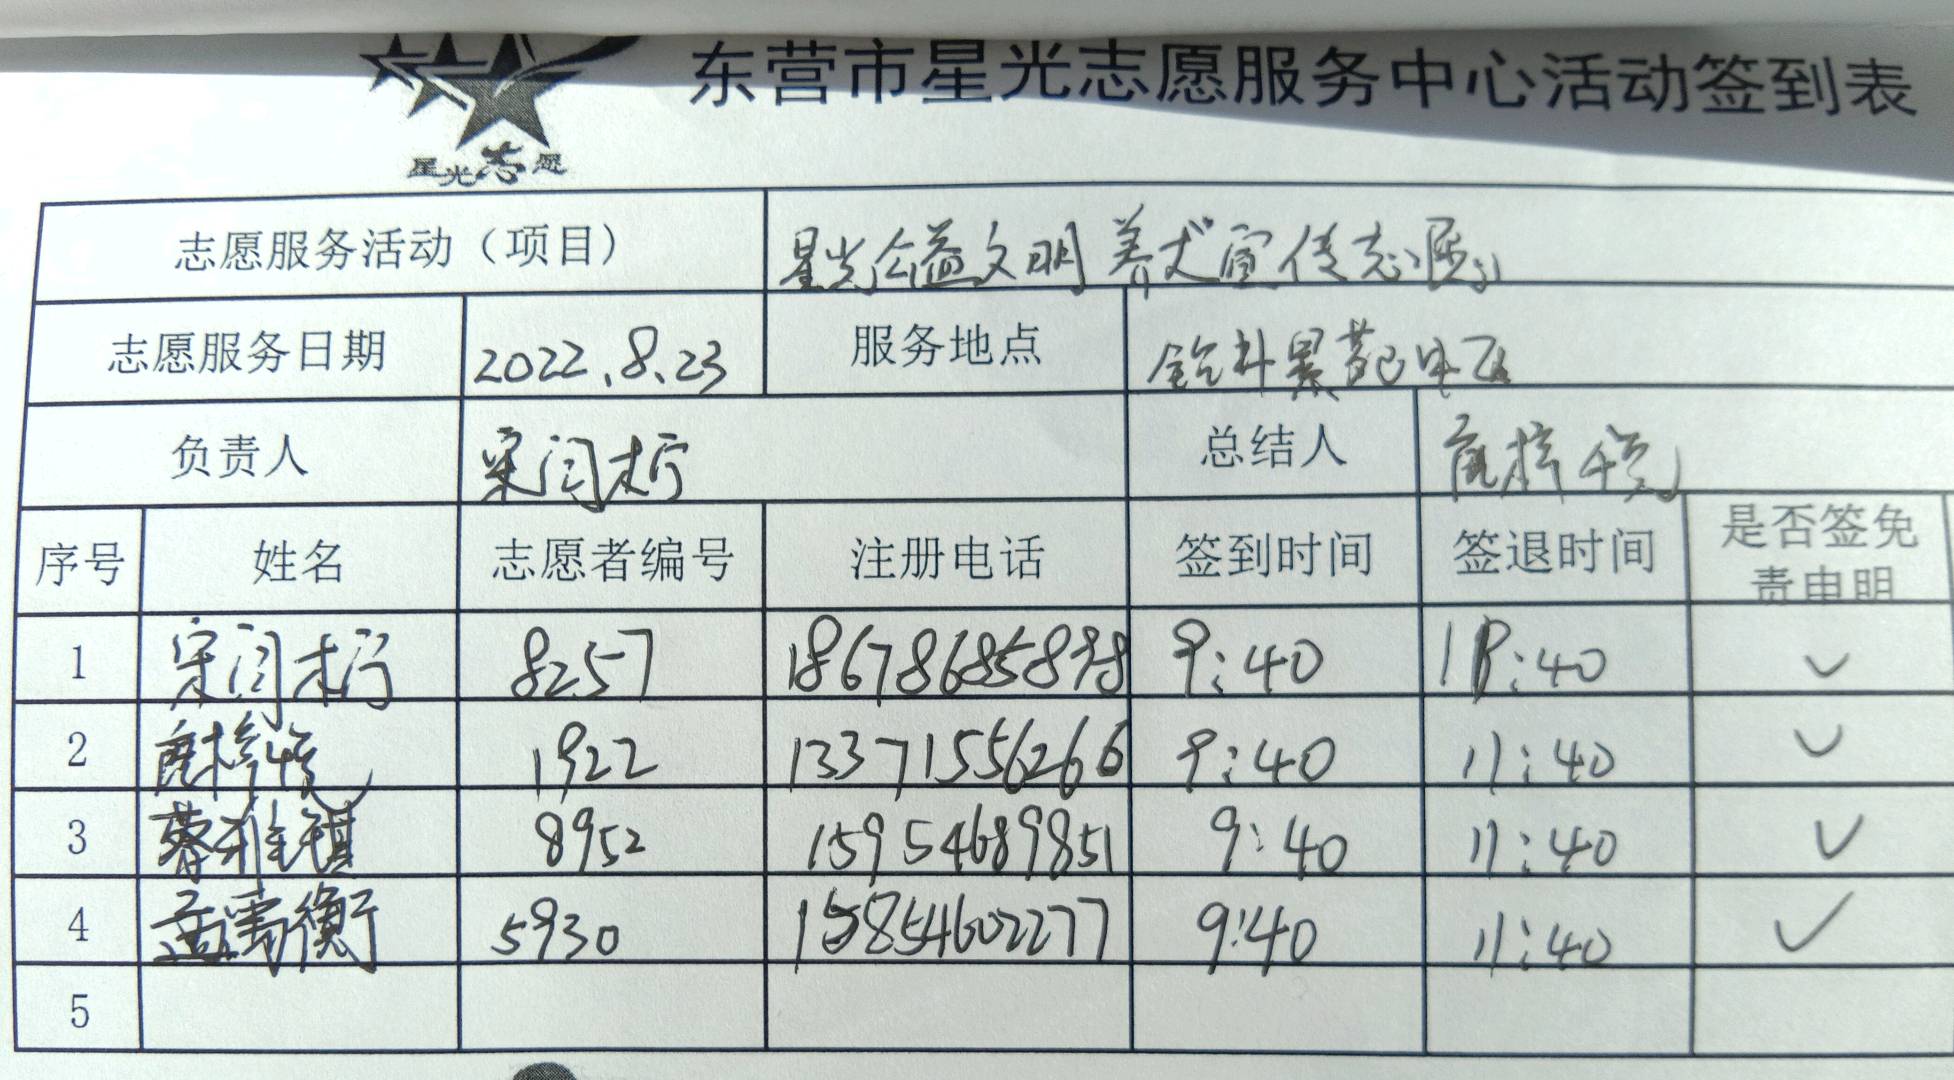 东营市星光志愿服务中心活动签到表
星光志愿
志愿服务活动（项目） 星光公益文明养犬宣传志愿
志愿服务日期 2022.8.23 服务地点
负责人 宋闫术 总结人
序号 姓名 志愿者编号 注册电话 签到时间 签退时间 是否签免
责申明
1 宋闫 8257 18678685898 9:40 11:40 ✓
2 1922 13371556266 9:40 11:40 ✓
3 蔡雅琪 8952 15954689851 9:40 11:40 ✓
4 孟禹衡 5930 15854602277 9:40 11:40 ✓
5